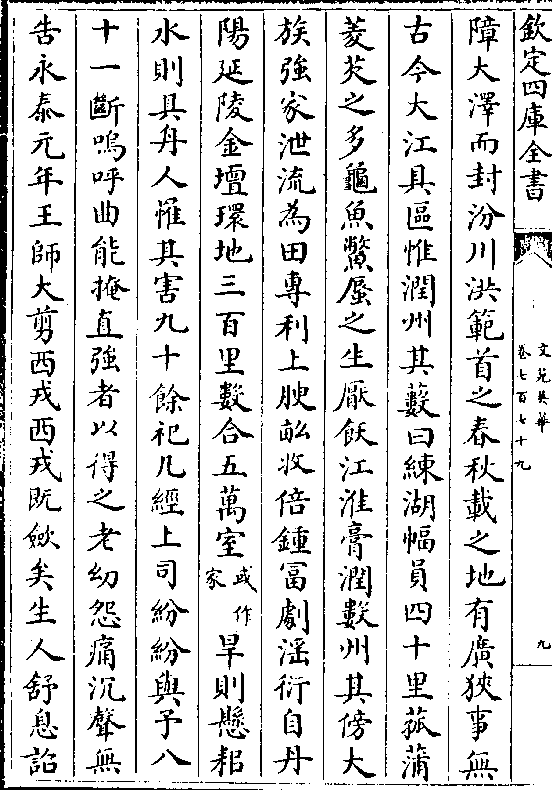 欽定四庫全書
文苑英華
卷七百七十九
九
障大澤而封汾川洪範首之春秋載之地有廣狹事無
古今大江具區惟潤州其藪曰練湖幅員四十里菰蒲
菱芡之多龜魚鱉蜃之生厭飫江淮膏潤數州其傍大
族強家泄流為田專利上腴畝收倍鍾冨劇淫衍自丹
陽延陵金壇環地三百里數合五萬室或作家旱則懸耜
水則具舟人罹其害九十餘祀凡經上司紛紛與予八
十一斷嗚呼曲能掩直強者以得之老幼怨痛沉聲無
告永泰元年王師大剪西戎西戎既㰸矣生人舒息詔